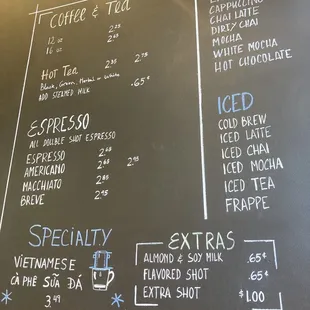 COFFEE & TEA
12 oz 2.25
16 oz 2.65
HOT TEA 2.35 2.75
Black, Green, Herbal or White
ADD STEAMED MILK .65¢
ESPRESSO
ALL DOUBLE SHOT ESPRESSO
ESPRESSO 2.65
AMERICANO 2.65 2.95
MACCHIATO 2.85
BREVE 2.95
SPECIALTY
VIETNAMESE
CÀ PHÊ SỮA ĐÁ
3.49
CAPPUCCINO
CHAI LATTE
DIRTY CHAI
MOCHA
WHITE MOCHA
HOT CHOCOLATE
ICED
COLD BREW
ICED LATTE
ICED CHAI
ICED MOCHA
ICED TEA
FRAPPE
EXTRAS
ALMOND & SOY MILK .65¢
FLAVORED SHOT .65¢
EXTRA SHOT $1.00